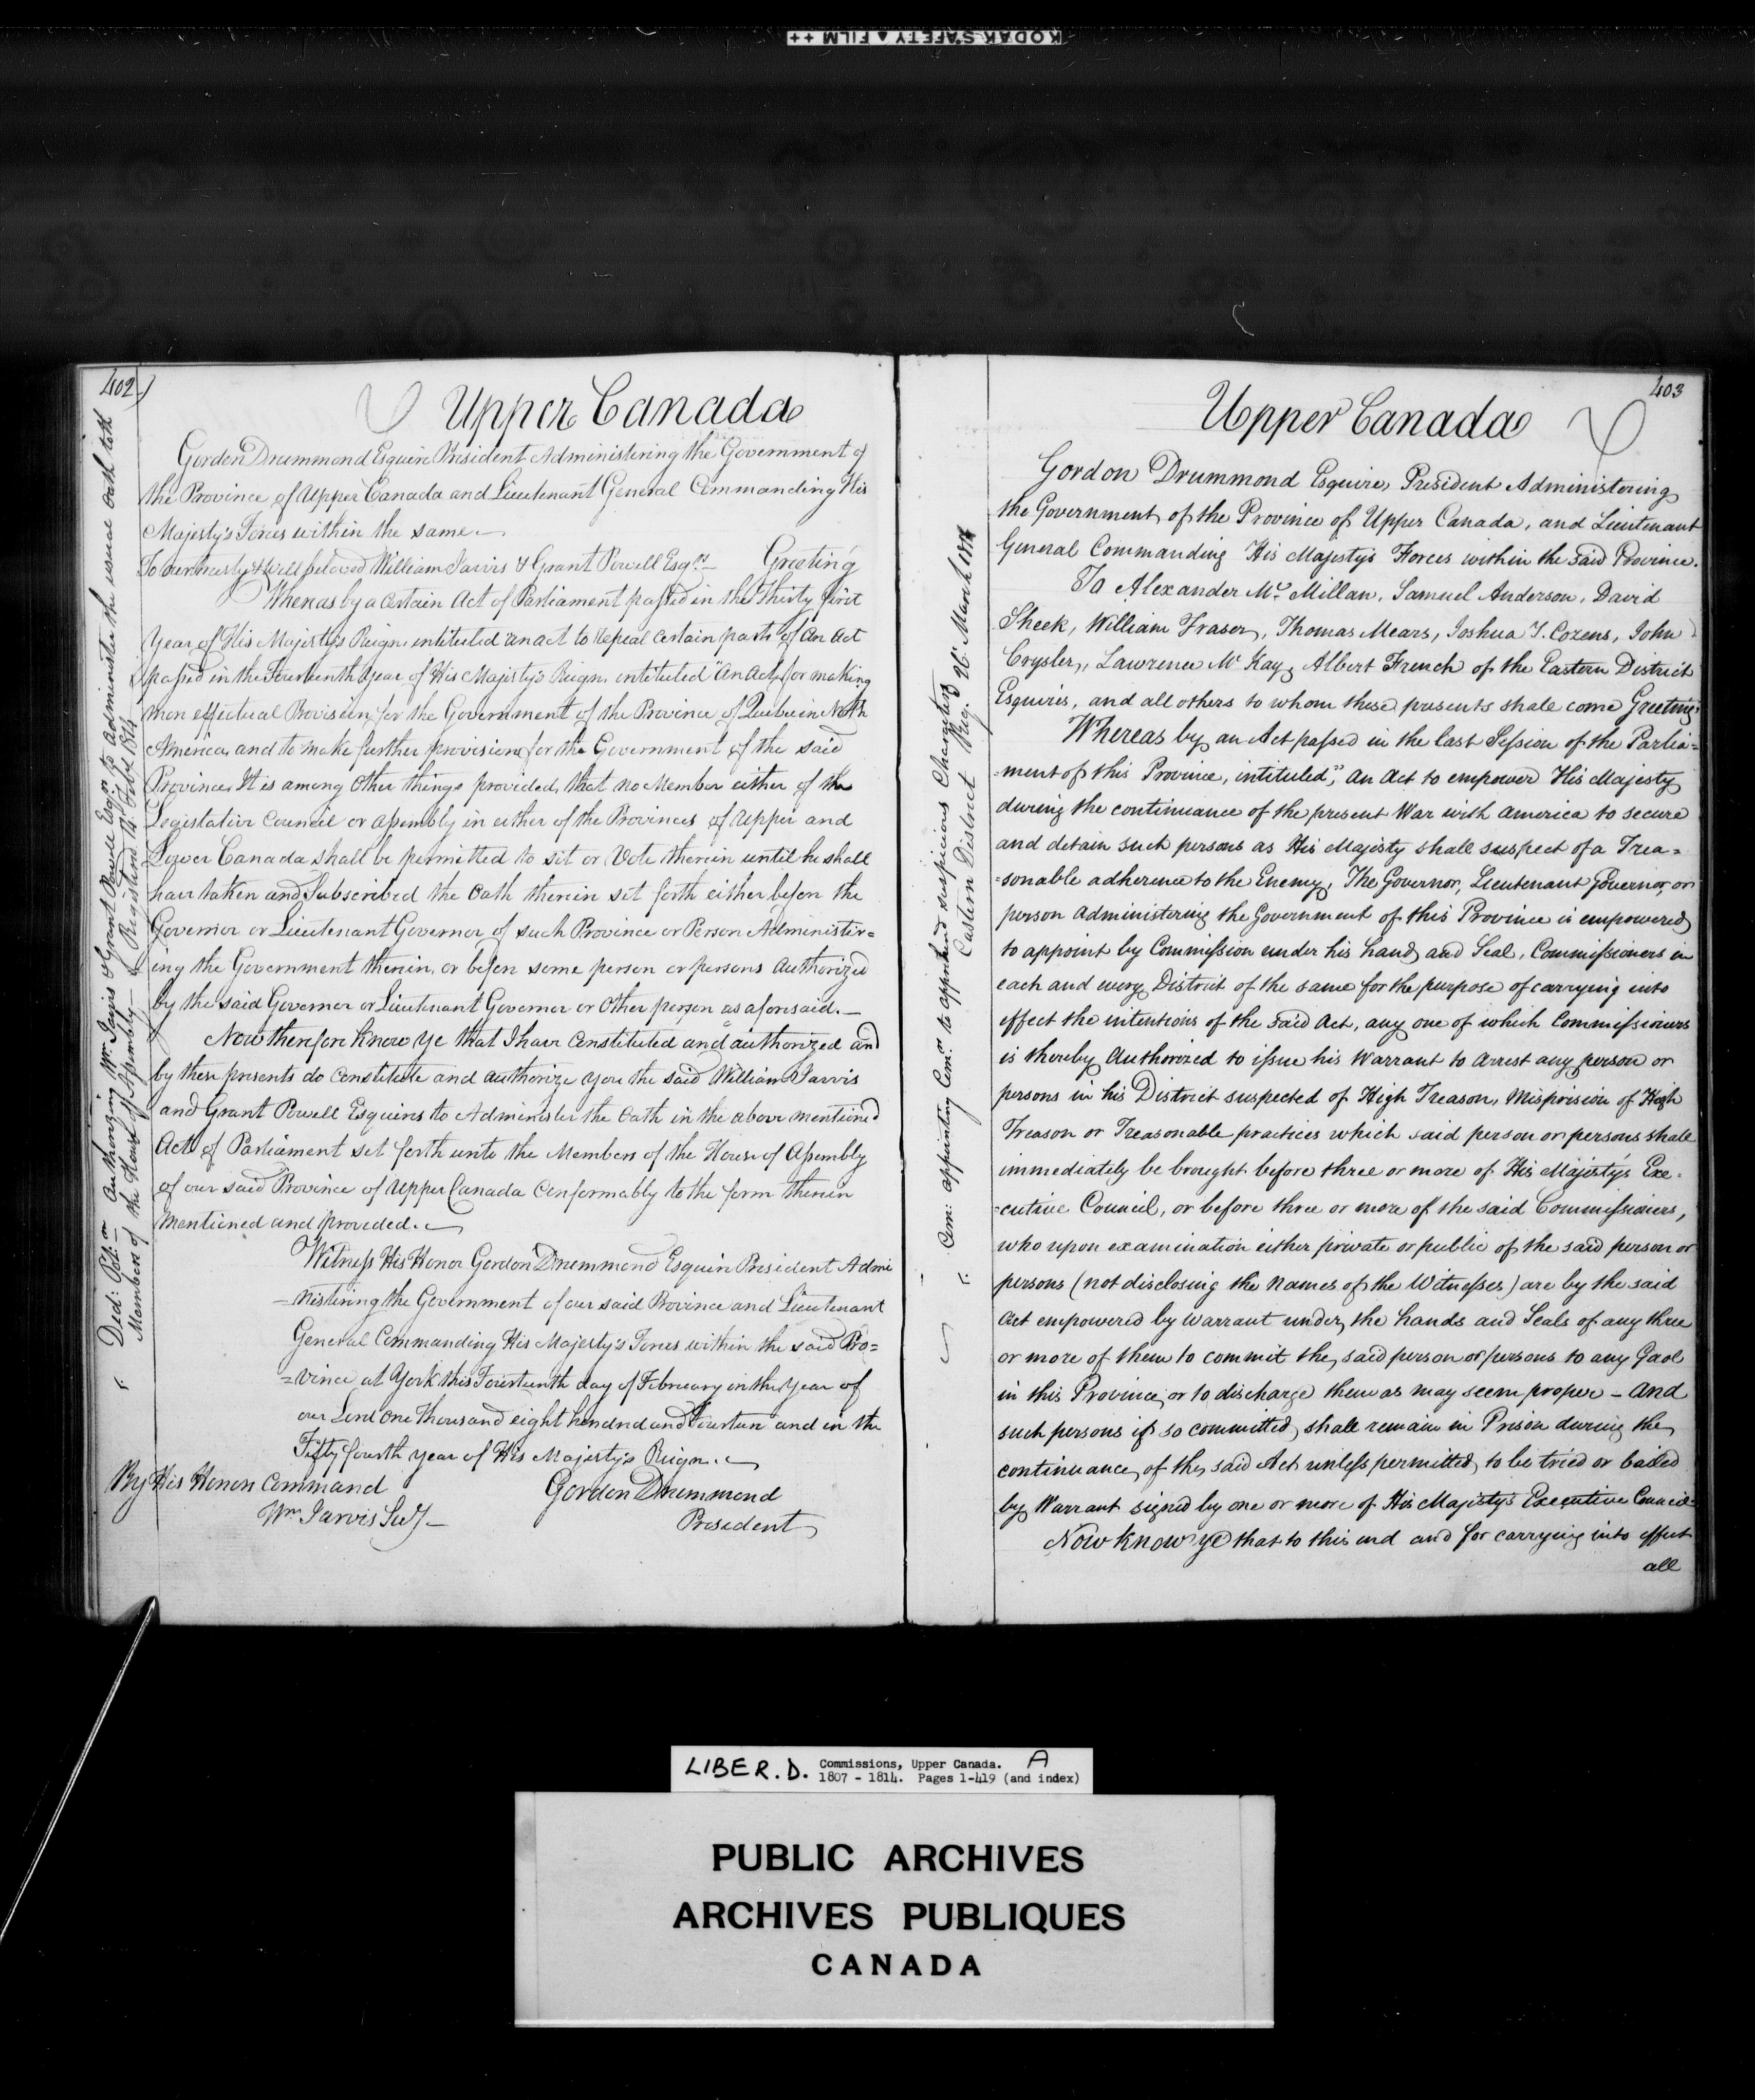 KODAK SAFETY ▲ FILM ++
402
Upper Canada
Gordon Drummond Esquire President Administering the Government of
the Province of Upper Canada and Lieutenant General Commanding His
Majesty's Forces within the same.—
To our trusty & Well beloved William Jarvis & Grant Powell Esqrs— Greeting
Whereas by a Certain Act of Parliament passed in the Thirty first
Year of His Majesty's Reign intituled "an act to repeal certain parts of an Act
passed in the Fourteenth Year of His Majesty's Reign intituled "An Act for making
more effectual Provision for the Government of the Province of Quebec in North
America and to make further provision for the Government of the said
Province. It is among Other things provided, that no Member either of the
Legislative Council or Assembly in either of the Provinces of Upper and
Lower Canada shall be permitted to sit or Vote therein until he shall
have taken and Subscribed the Oath therein set forth either before the
Governor or Lieutenant Governor of such Province or Person Administer=
ing the Government therein, or before some person or persons Authorized
by the said Governor or Lieutenant Governor or Other person as aforesaid.—
Now therefore Know Ye that I have Constituted and authorized and
by these presents do Constitute and authorize you the said William Jarvis
and Grant Powell Esquires to Administer the Oath in the above mentioned
Act of Parliament set forth unto the Members of the House of Assembly
of our said Province of Upper Canada Conformably to the form therein
mentioned and provided.—
Witness His Honor Gordon Drummond Esquire President Admi
=nistering the Government of our said Province and Lieutenant
General Commanding His Majesty's Forces within the said Pro=
=vince at York this Fourteenth day of February in the Year of
our Lord One Thousand eight hundred and Fourteen and in the
Fifty fourth year of His Majesty's Reign.—
By His Honors Command
Gordon Drummond
Wm Jarvis Secy—
President
Ded: Pot:m Authorizing Wm Jarvis & Grant Powell Esqrs to Administer the usual oath to the
Members of the House of Assembly — Registered 14th Feby 1814
403
Upper Canada
Gordon Drummond Esquire, President Administering
the Government of the Province of Upper Canada, and Lieutenant
General Commanding His Majesty's Forces within the said Province.
To Alexander Mc Millan, Samuel Anderson, David
Sheek, William Fraser, Thomas Mears, Joshua Y. Cozens, John
Crysler, Lawrence Mc Kay, Albert French of the Eastern District
Esquires, and all others to whom these presents shall come Greeting:
Whereas by an Act passed in the last Session of the Parlia=
=ment of this Province, intituled, "An Act to empower His Majesty
during the continuance of the present War with America to secure
and detain such persons as His Majesty shall suspect of a Trea=
=sonable adherence to the Enemy, The Governor, Lieutenant Governor, or
person Administering the Government of this Province is empowered
to appoint by Commission under his hand and Seal, Commissioners in
each and every District of the same for the purpose of carrying into
effect the intentions of the said Act, any one of which Commissioners
is thereby Authorized to issue his Warrant to Arrest any person or
persons in his District suspected of High Treason, Misprision of High
Treason or Treasonable practices which said person or persons shall
immediately be brought before three or more of His Majesty's Exe=
=cutive Council, or before three or more of the said Commissioners,
who upon examination either private or public of the said person or
persons (not disclosing the Names of the Witnesses) are by the said
Act empowered by Warrant under the hands and Seals of any three
or more of them to commit the said person or persons to any Gaol
in this Province or to discharge them as may seem proper — And
such persons if so committed shall remain in Prison during the
continuance of the said Act unless permitted to be tried or bailed
by Warrant signed by one or more of His Majesty's Executive Council
Now Know ye that to this end and for carrying into effect
all
Com: appointing Comrs to apprehend suspicious Characters
Eastern District Reg. 26. March 1814
LIBER. D. Commissions, Upper Canada. A
1807 - 1814. Pages 1-419 (and index)
PUBLIC ARCHIVES
ARCHIVES PUBLIQUES
CANADA